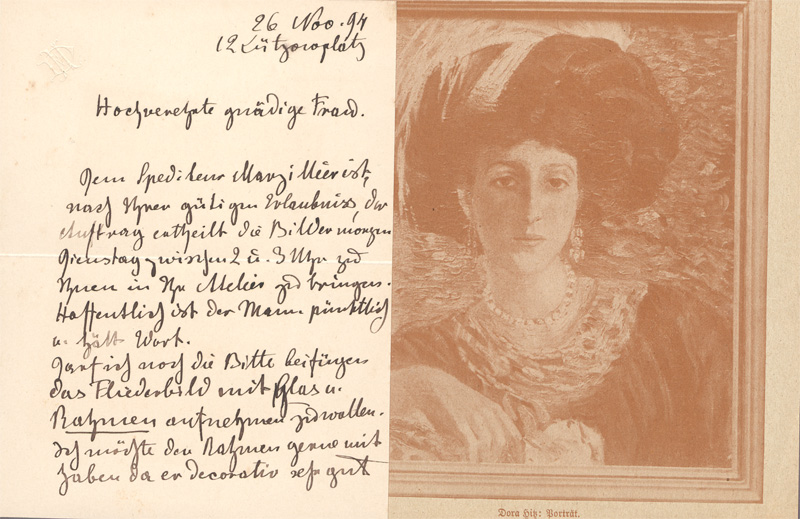 26 Nov. 94
12 Lützowplatz
Hochverehrte gnädige Frau.
Dem Spediteur ist,
nach Ihrer gütigen Erlaubniss, der
Auftrag ertheilt die Bilder morgen
Dienstag zwischen 2 u. 3 Uhr zu
Ihnen in Ihr Atelier zu bringen.
Hoffentlich ist der Mann pünktlich
u. hält Wort.
Darf ich noch die Bitte beifügen
das Fliederbild mit Glas u.
Rahmen aufnehmen zu wollen.
Ich möchte den Rahmen gerne mit
haben da er decorativ sehr gut
Dora Hitz: Porträt.